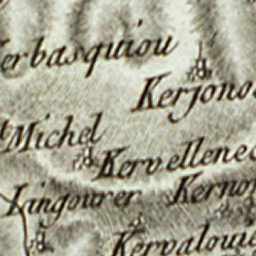 erbasquiou
Kerjono
t Michel
Kervellenec
Lingourer
Kernon
Kervaloui